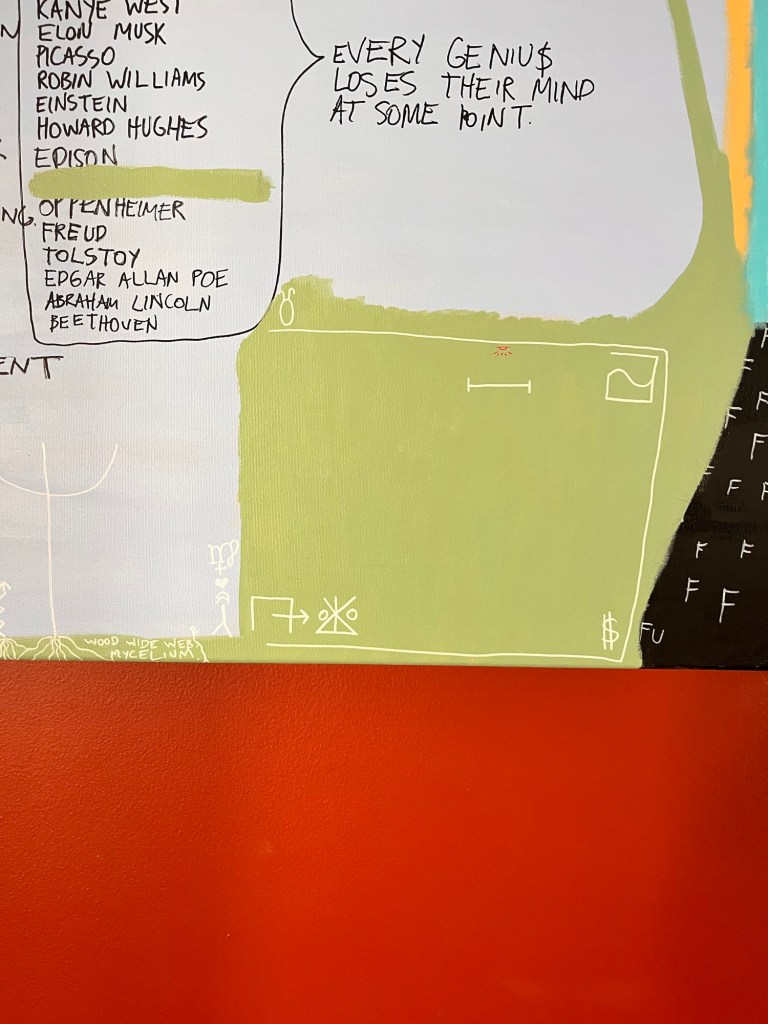 KANYE WEST
ELON MUSK
PICASSO
ROBIN WILLIAMS
EINSTEIN
HOWARD HUGHES
EDISON
OPPENHEIMER
FREUD
TOLSTOY
EDGAR ALLAN POE
ABRAHAM LINCOLN
BEETHOVEN
EVERY GENIU$
LOSES THEIR MIND
AT SOME POINT.
N
NG.
ENT
F
F
F
F
F
F
F
F
F
F
F
F
$
FU
WOOD WIDE WEB
MYCELIUM.